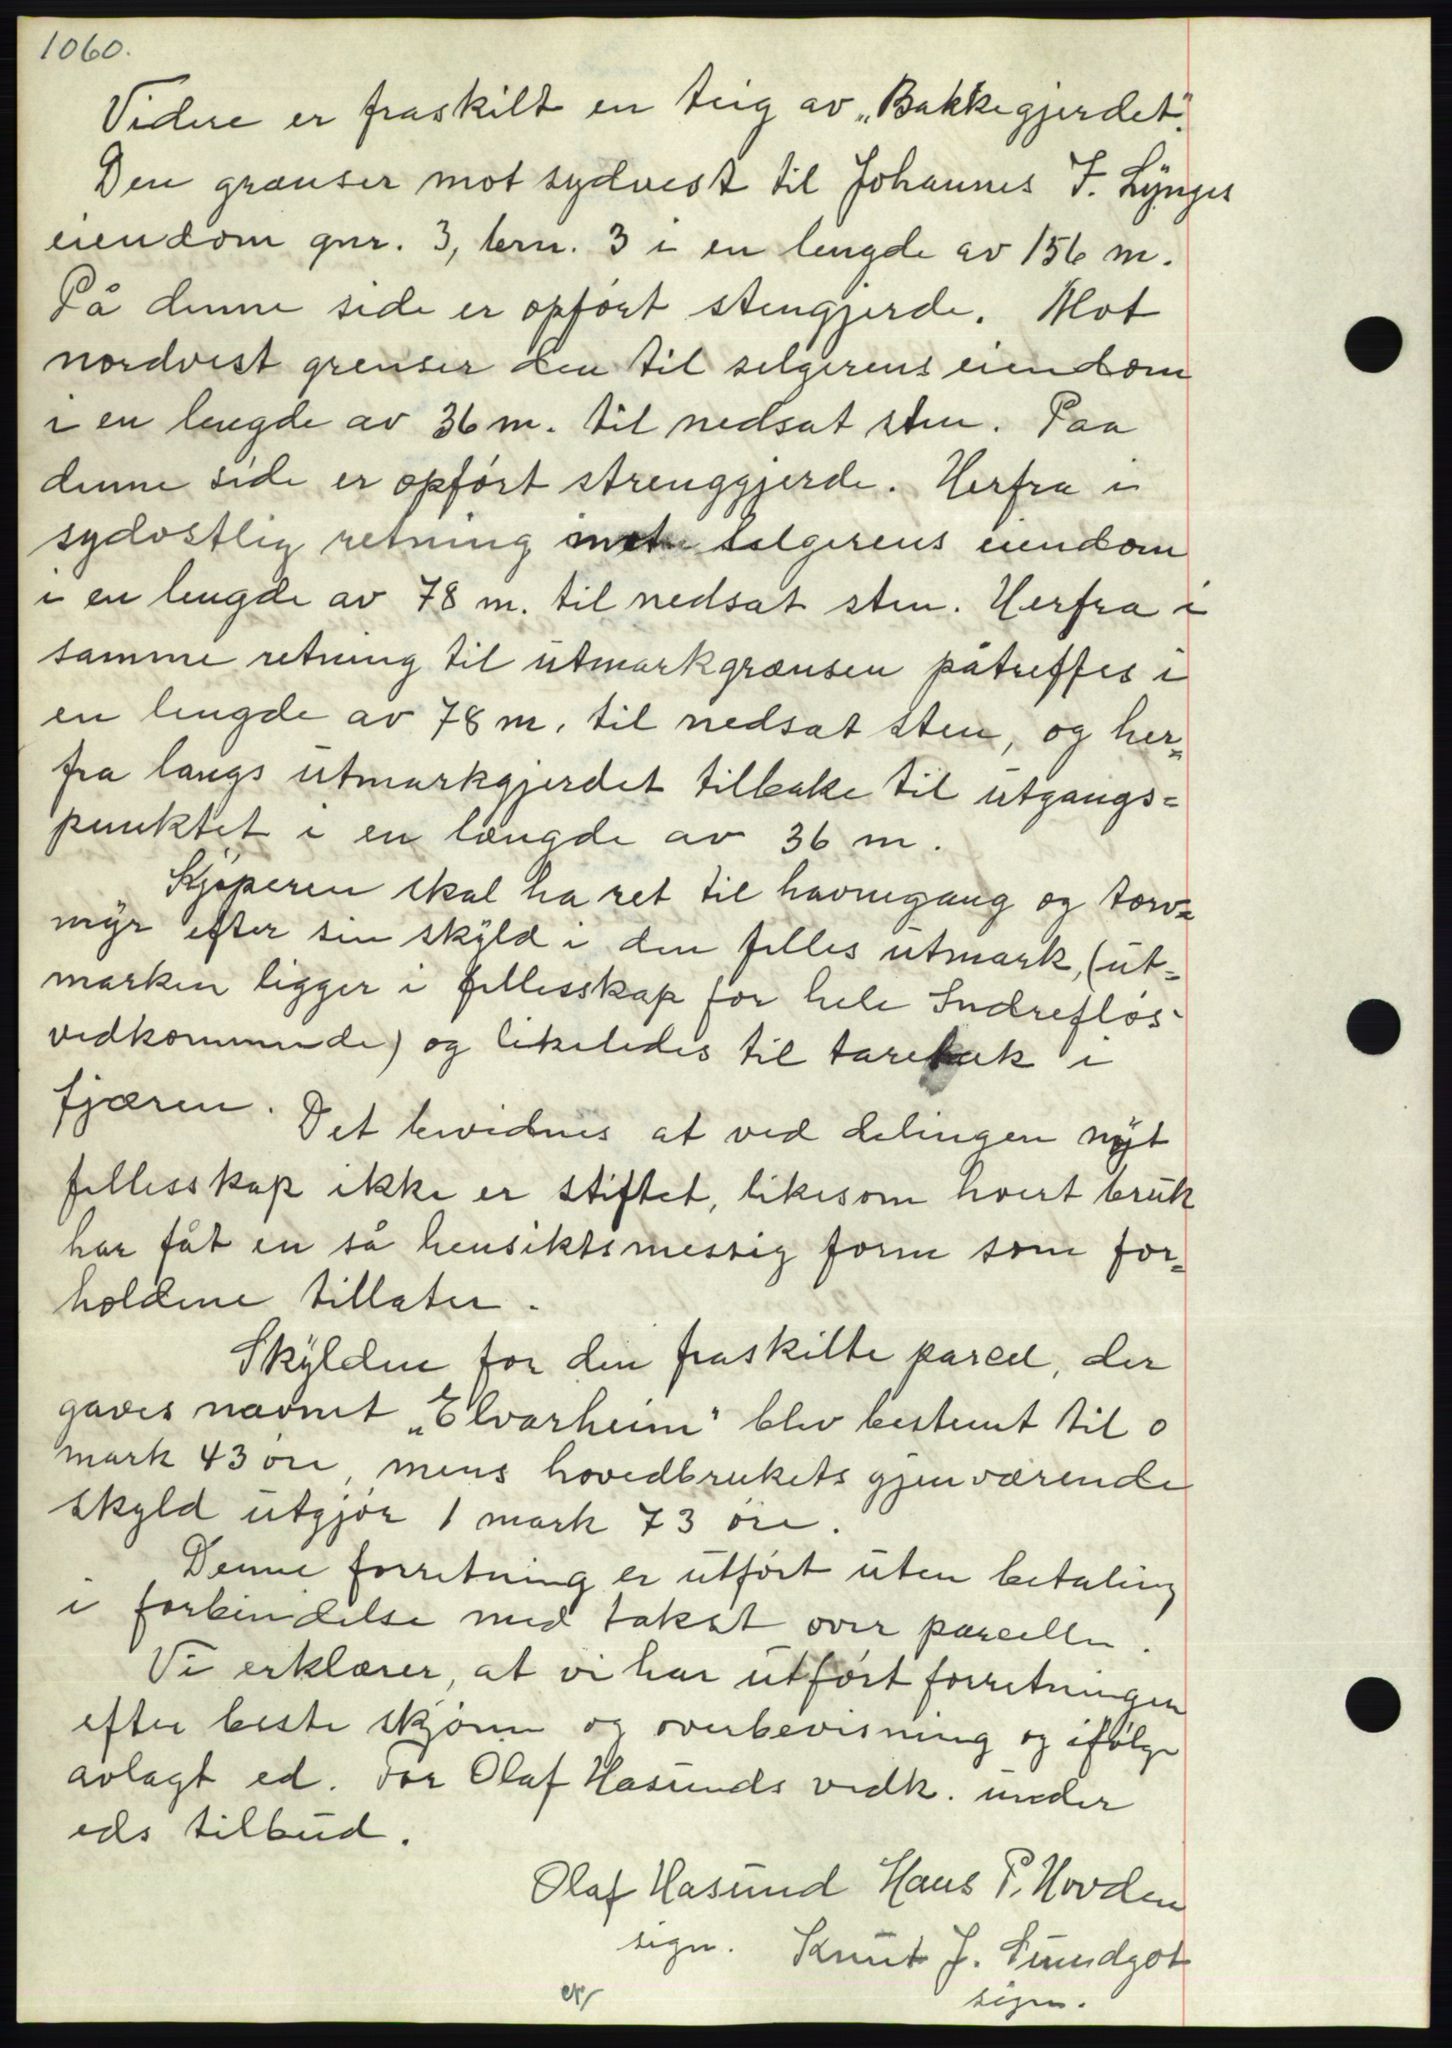 1060.
Videre er fraskilt en teig av „Bakkegjerdet".
Den grænser mot sydvest til Johannes J. Lynges
eiendom gnr. 3, brn. 3 i en lengde av 156 m.
På denne side er opført stengjerde. Mot
nordvest grenser den til selgerens eiendom
i en lengde av 36 m. til nedsat sten. Paa
denne side er opført strenggjerde. Herfra i
sydostlig retning mot selgerens eiendom
i en lengde av 78 m. til nedsat sten. Herfra i
samme retning til utmarkgrænsen påtreffes i
en lengde av 78 m. til nedsat sten, og her=
fra langs utmarkgjerdet tilbake til utgangs=
punktet i en længde av 36 m.
Kjøperen skal ha ret til havnegang og torv=
myr efter sin skyld i den felles utmark, (ut=
marken ligger i fellesskap for hele Indrefløs-
vedkommende) og likeledes til taretak i
fjæren.
Det bevidnes at ved delingen nyt
fellesskap ikke er stiftet, likesom hvert bruk
har fåt en så hensiktsmessig form som for=
holdene tillater.
Skylden for den fraskilte parcel, der
gaves navnet „Elvarheim" blev bestemt til 0
mark 43 øre, mens hovedbrukets gjenværende
skyld utgjør 1 mark 73 øre.
Denne forretning er utført uten betaling
i forbindelse med takst over parcellen.
Vi erklærer, at vi har utført forretningen
efter beste skjønn og overbevisning og ifølge
avlagt ed. For Olaf Hasunds vedk. under
eds tilbud.
Olaf Hasund Hans P. Hovden
sign. Knut J. Sundgot
sign.